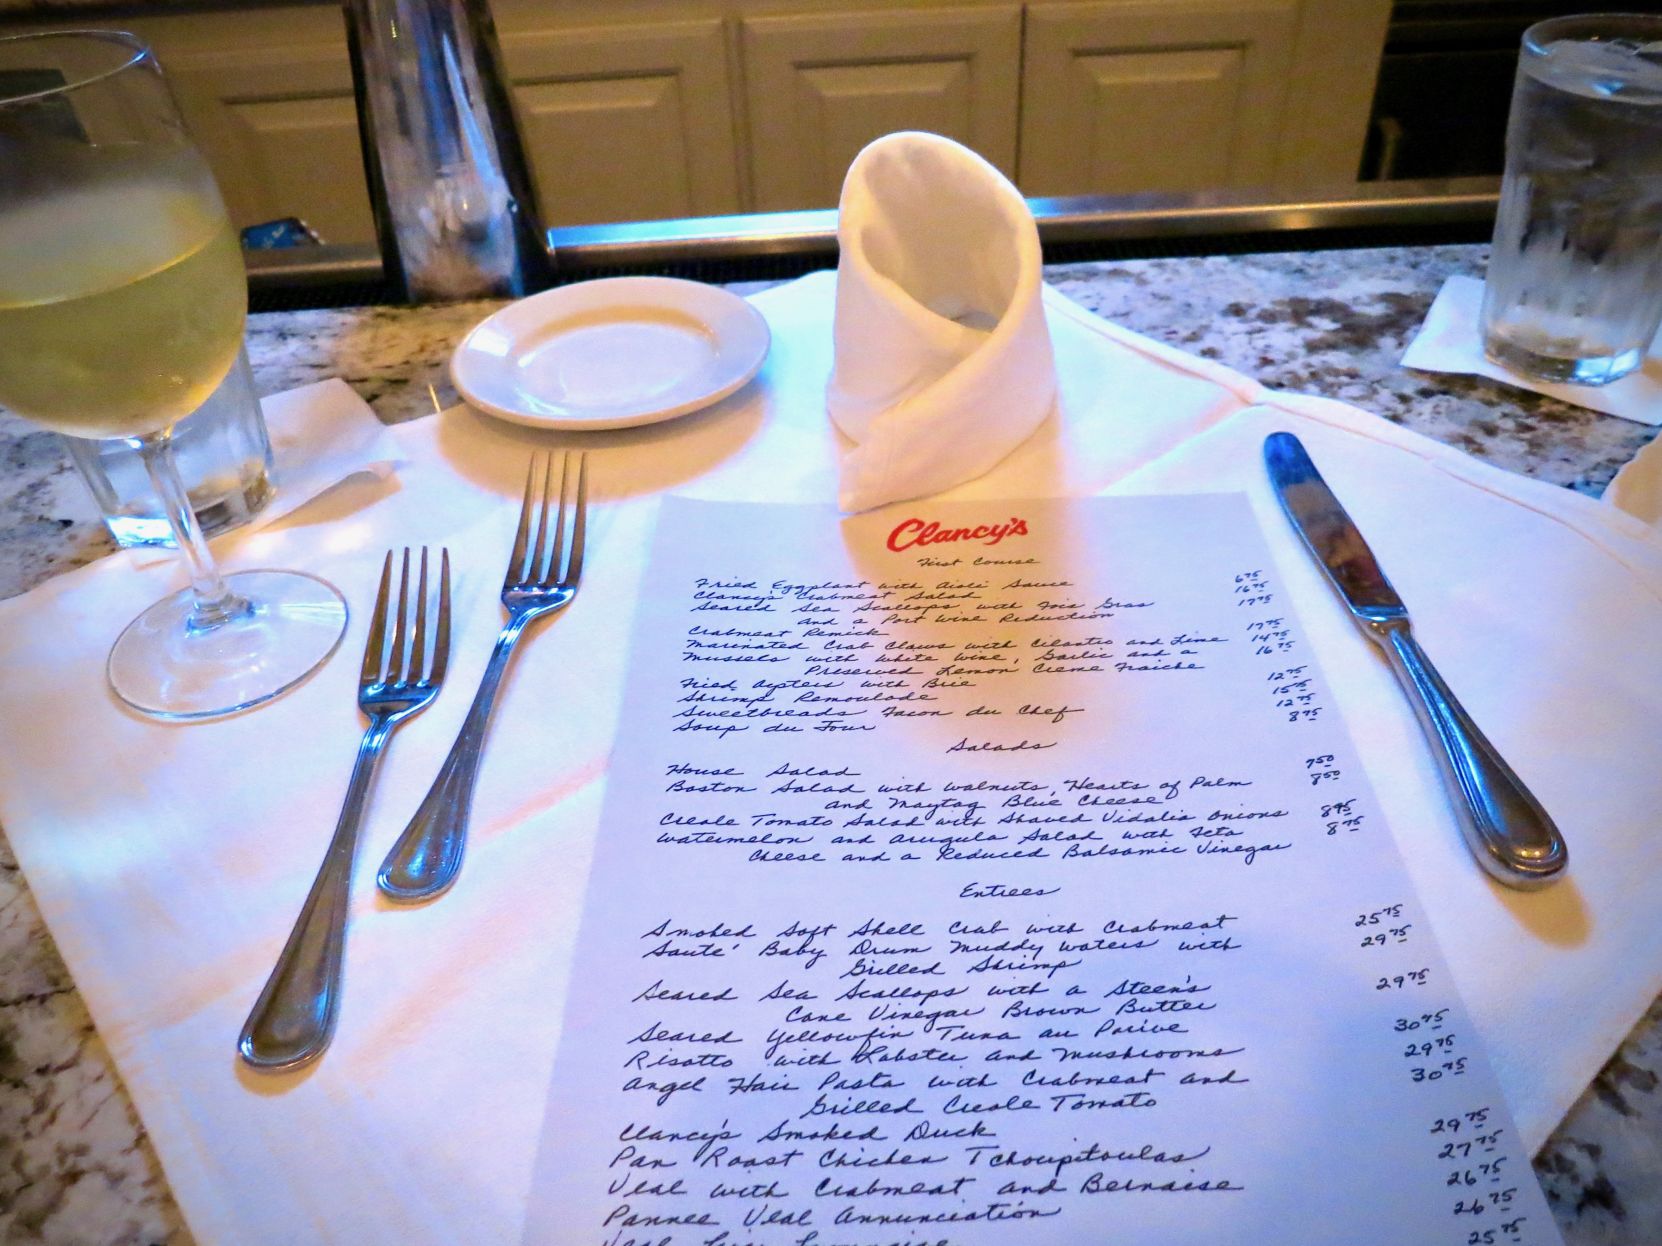 Clancy's
First Course
Fried Eggplant with Aioli Sauce 6 75
Clancy's Crabmeat Salad 16 75
Seared Sea Scallops with Fois Gras 17 75
and a Port Wine Reduction
Crabmeat Remick 17 75
Marinated Crab Claws with Cilantro and Lime 14 75
Mussels with White Wine, Garlic and a 16 75
Preserved Lemon Creme Fraiche
Fried Oysters with Brie 12 75
Shrimp Remoulade 15 75
Sweetbreads Facon du Chef 12 75
Soup du Jour 8 75
Salads
House Salad 7 50
Boston Salad with Walnuts, Hearts of Palm 8 50
and Maytag Blue Cheese
Creole Tomato Salad with Shaved Vidalia Onions 8 95
Watermelon and Arugula Salad with Feta 8 75
Cheese and a Reduced Balsamic Vinegar
Entrees
Smoked Soft Shell Crab with Crabmeat 25 75
Sauté Baby Drum Muddy Waters with 29 75
Grilled Shrimp
Seared Sea Scallops with a Steen's 29 75
Cane Vinegar Brown Butter
Seared Yellowfin Tuna au Poivre 30 75
Risotto with Lobster and Mushrooms 29 75
Angel Hair Pasta with Crabmeat and 30 75
Grilled Creole Tomato
Clancy's Smoked Duck 29 75
Pan Roast Chicken Tchoupitoulas 27 75
Veal with Crabmeat and Bernaise 26 75
Pannee Veal Annunciation 26 75
Veal 25 75